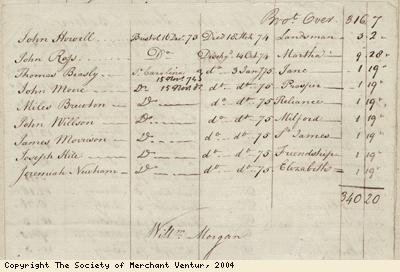 Bro.t Over 316 7
John Howell Bristol 16 Dec.r 73 Died 18 74 Landsman 3 2
John Ross D.o 14 Oct.r 74 Martha 9 28
Thomas Beasly S.o Carolina 15 Nov.r 74 d.o 3 Jan.y 75 Jane 1 19
John Mone D.o 15 d.o d.o 75 Prosper 1 19
Miles Brewton D.o d.o d.o 75 Reliance 1 19
John Willson D.o d.o d.o 75 Milford 1 19
James Morrison D.o d.o d.o 75 S.t James 1 19
Joseph Hite D.o d.o d.o 75 Friendship 1 19
Jeremiah Newham D.o d.o d.o 75 Elizabeth 1 19
340 20
Will.m Morgan
Copyright The Society of Merchant Ventur, 2004